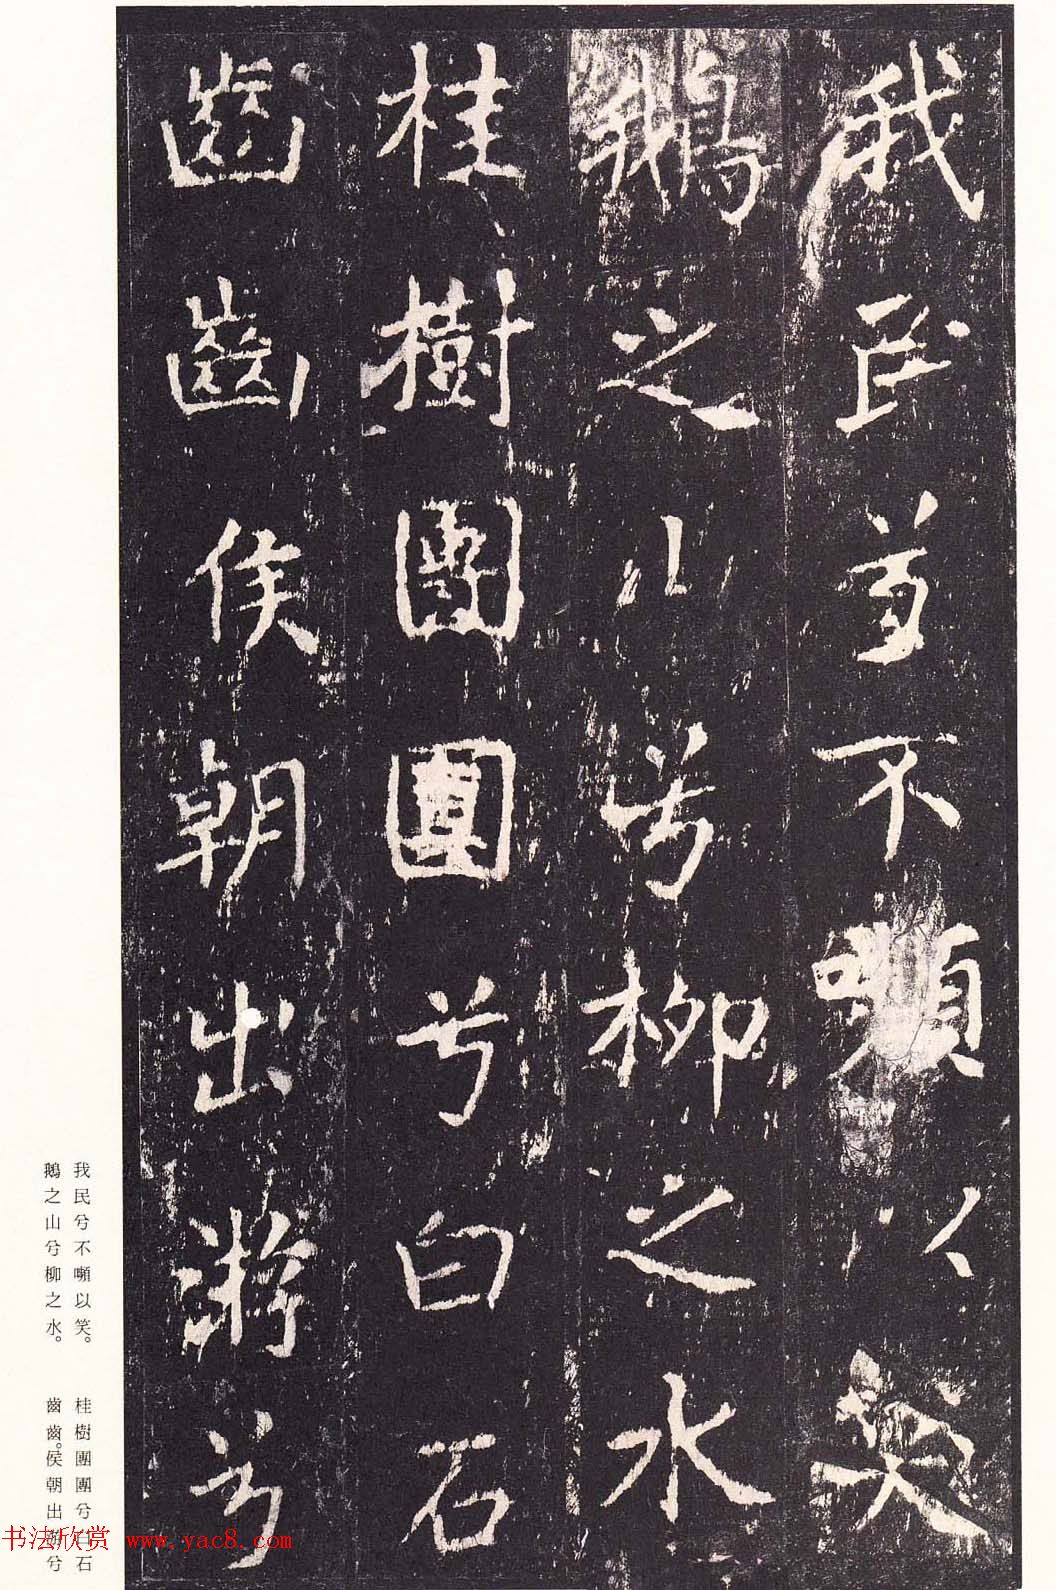 我民兮不嚬以笑
鵝之山兮柳之水
桂樹團團兮白石
齒齒侯朝出游兮
我民兮不嚬以笑。
鵝之山兮柳之水。
桂樹團團兮白石
齒齒。侯朝出游兮
书法欣赏 www.yac8.com